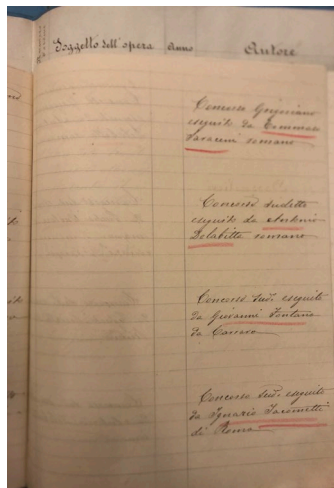 Soggetto dell'opera Anno Autore
Concorso
eseguito da Tommaso
Saracini romano
Concorso sudetto
eseguito da Antonio
Delabitta romano
Concorso sud. eseguito
da Giovanni Fontana
da Carrara
Concorso sud. eseguito
da Ignazio Jacometti
di Roma